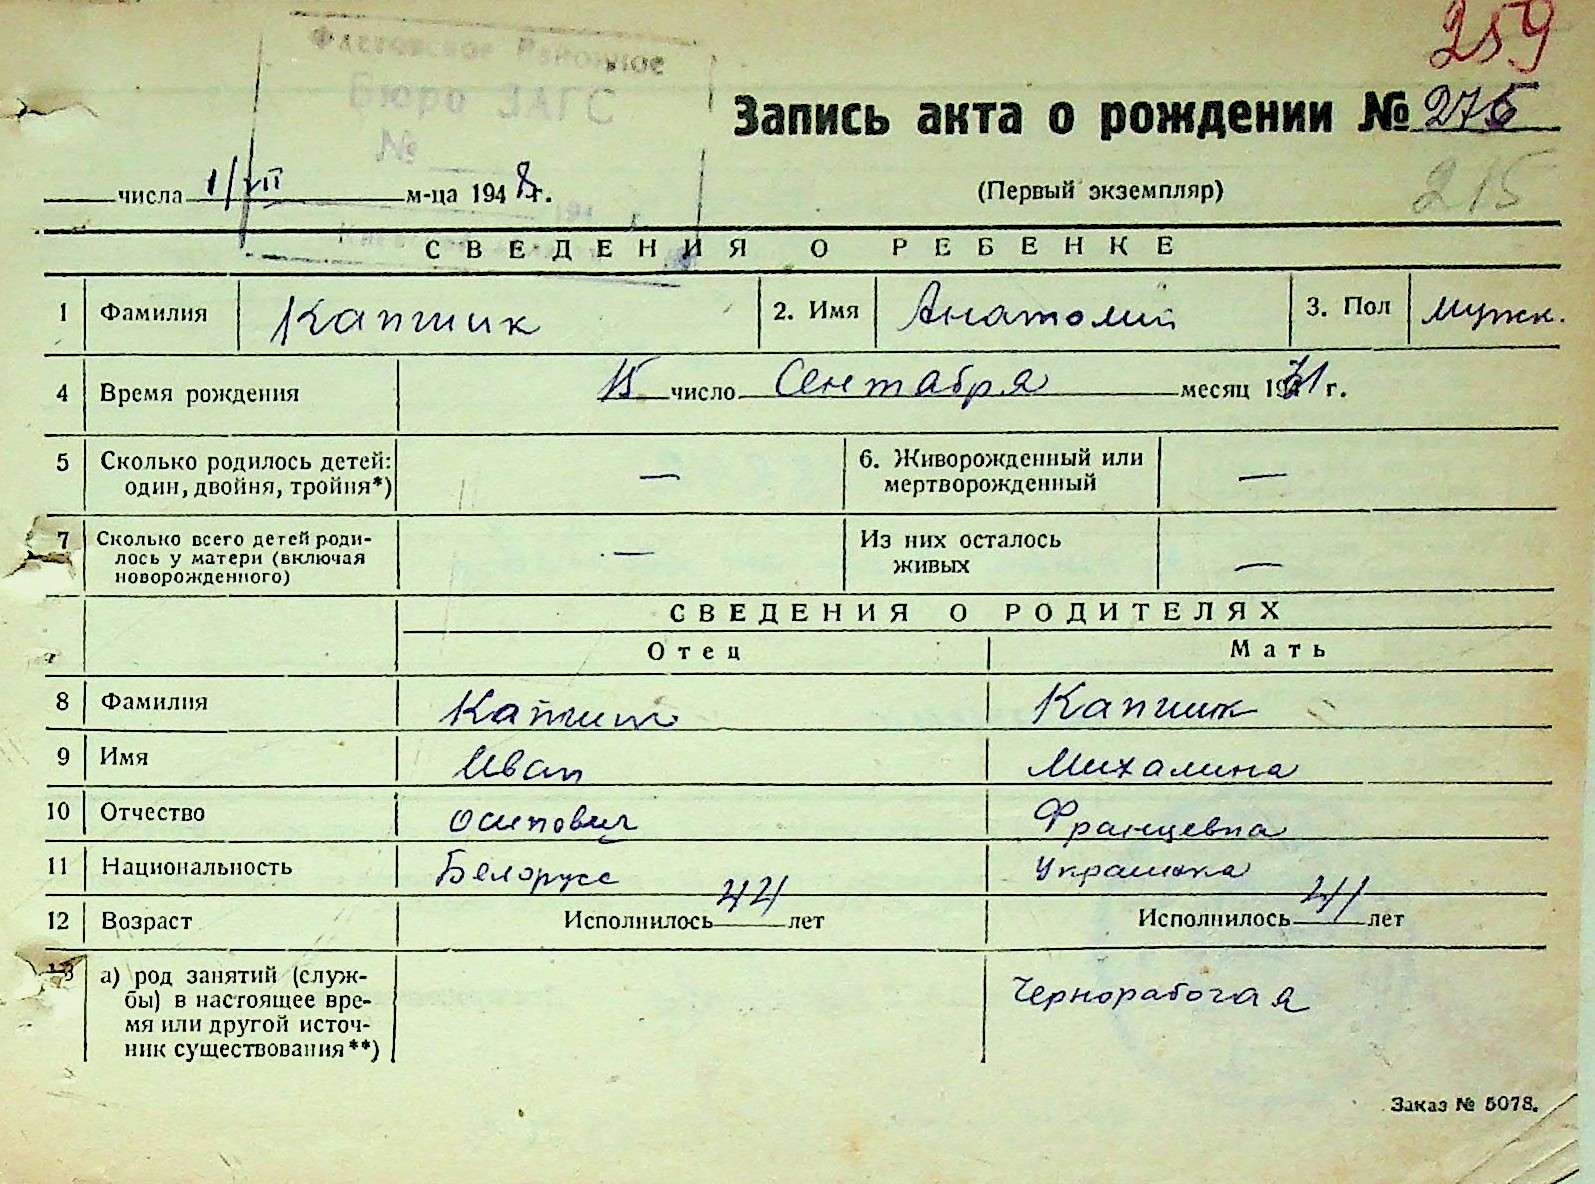 259
Районное
Бюро ЗАГС
№
Запись акта о рождении № 276
числа 1/VII м-ца 1948 г.
(Первый экземпляр)
215
СВЕДЕНИЯ О РЕБЕНКЕ
1 Фамилия Капшик 2. Имя Анатолий 3. Пол мужск.
4 Время рождения 15 число Сентября месяц 1931 г.
5 Сколько родилось детей: — 6. Живорожденный или —
один, двойня, тройня*) мертворожденный
7 Сколько всего детей роди- — Из них осталось —
лось у матери (включая живых
новорожденного)
СВЕДЕНИЯ О РОДИТЕЛЯХ
Отец Мать
8 Фамилия Капшик Капшик
9 Имя Иван Михалина
10 Отчество Осипович Францевна
11 Национальность Белорусс Украинка
12 Возраст Исполнилось 44 лет Исполнилось 41 лет
13 а) род занятий (служ- Чернорабочая
бы) в настоящее вре-
мя или другой источ-
ник существования**)
Заказ № 5078.